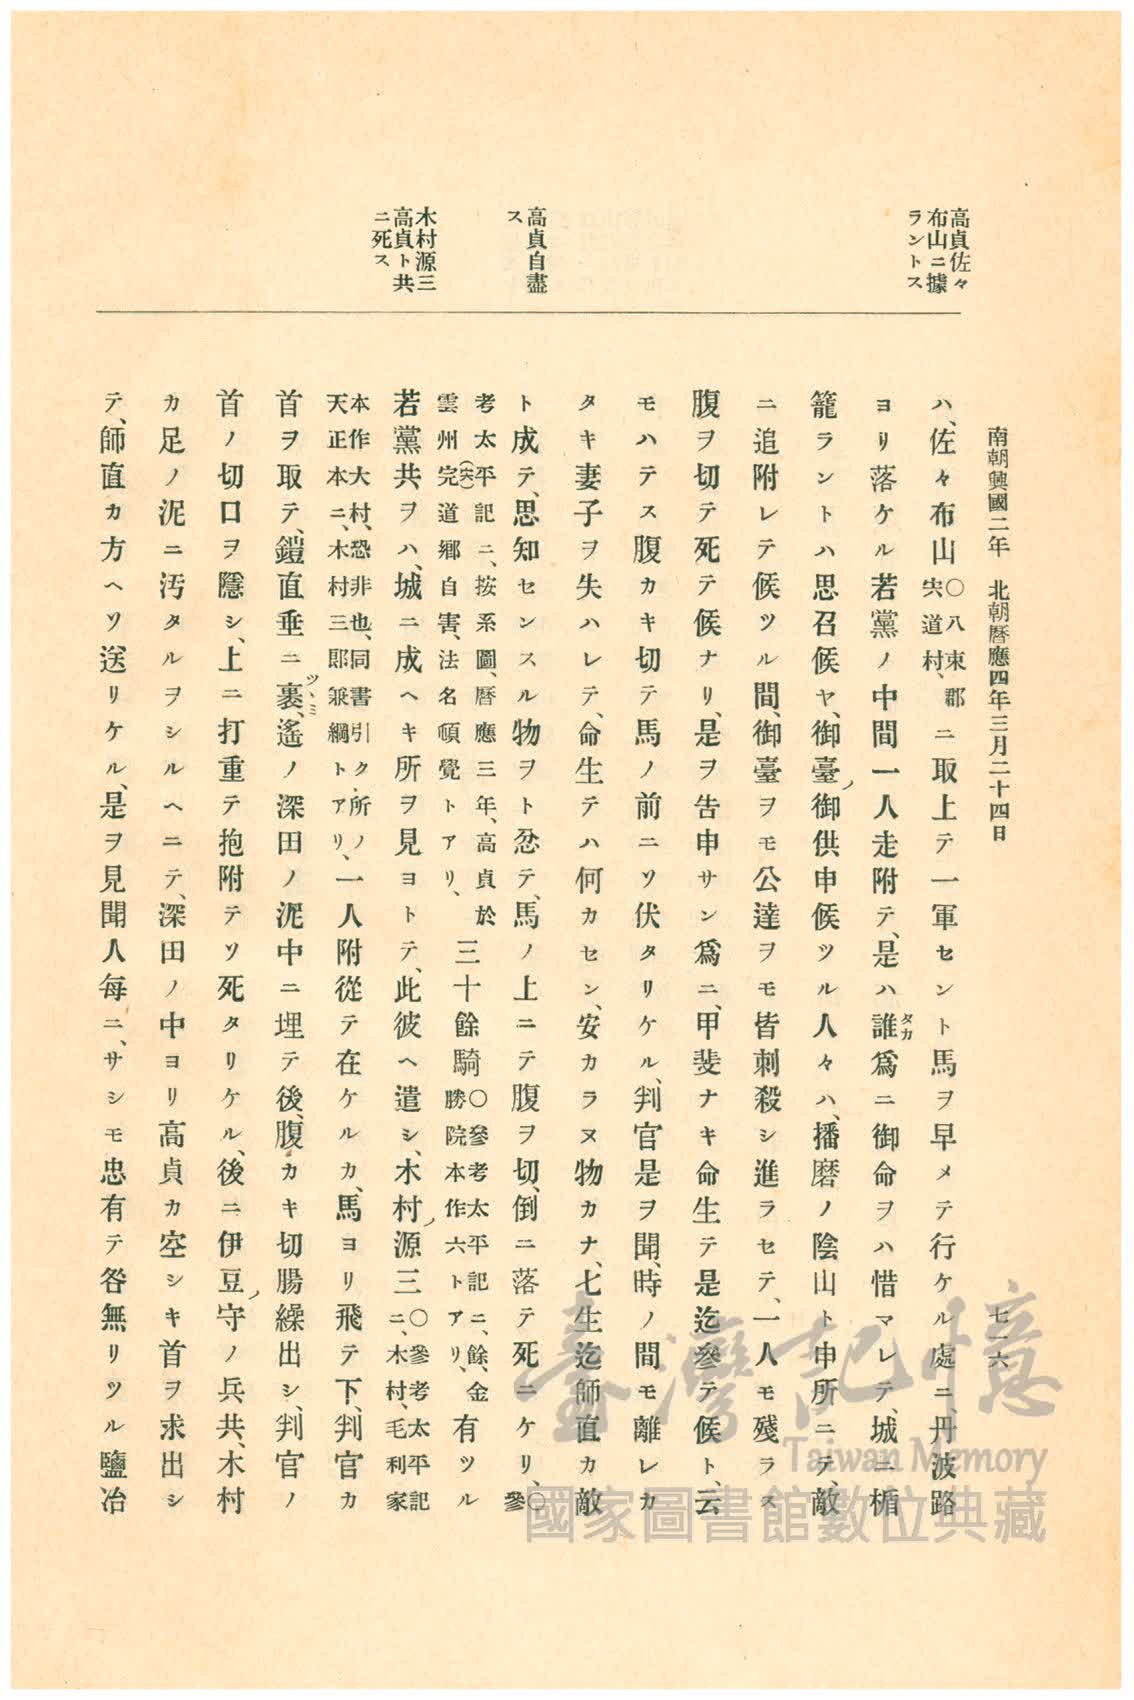 南朝興國二年 北朝曆應四年三月二十四日 七一六
高貞佐々
布山ニ據
ラントス
高貞自盡
ス
木村源三
高貞ト共
ニ死ス
ハ、佐々布山〇八束郡宍道村、ニ取上テ一軍セント馬ヲ早メテ行ケル處ニ、丹波路
ヨリ落ケル若黨ノ中間一人走附テ、是ハ誰タカ爲ニ御命ヲハ惜マレテ、城ニ楯
籠ラントハ思召候ヤ、御臺ノ御供申候ツル人々ハ、播磨ノ陰山ト申所ニテ、敵
ニ追附レテ候ツル間、御臺ヲモ公達ヲモ皆刺殺シ進ラセテ、一人モ殘ラス
腹ヲ切テ死テ候ナリ、是ヲ告申サン爲ニ、甲斐ナキ命生テ是迄參テ候ト、云
モハテス腹カキ切テ馬ノ前ニソ伏タリケル、判官是ヲ聞、時ノ間モ離レカ
タキ妻子ヲ失ハレテ、命生テハ何カセン、安カラヌ物カナ、七生迄師直カ敵
ト成テ、思知センスル物ヲト忿テ、馬ノ上ニテ腹ヲ切、倒ニ落テ死ニケリ、〇參
考太平記ニ、按系圖、曆應三年、高貞於雲州完(宍)道鄉自害、法名頓覺トアリ、三十餘騎〇參考太平記ニ、餘、金勝院本作六トアリ、有ツル
若黨共ヲハ、城ニ成ヘキ所ヲ見ヨトテ、此彼ヘ遣シ、木村ノ源三〇參考太平記ニ、木村、毛利家
本作大村、恐非也、同書引ク所ノ天正本ニ、木村三郎兼綱トアリ、一人附從テ在ケルカ、馬ヨリ飛テ下、判官カ
首ヲ取テ、鎧直垂ニ裹ツヽミ、遙ノ深田ノ泥中ニ埋テ後、腹カキ切腸繰出シ、判官ノ
首ノ切口ヲ隱シ、上ニ打重テ抱附テソ死タリケル、後ニ伊豆ノ守ノ兵共、木村
カ足ノ泥ニ汚タルヲシルヘニテ、深田ノ中ヨリ高貞カ空シキ首ヲ求出シ
テ、師直カ方ヘソ送リケル、是ヲ見聞人每ニ、サシモ忠有テ咎無リツル鹽冶
臺灣記憶
Taiwan Memory
國家圖書館數位典藏